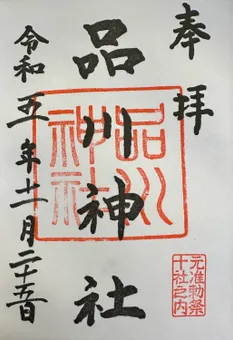 奉拝
品川神社
令和五年十一月二十五日
品川神社
元准勅祭十社之内